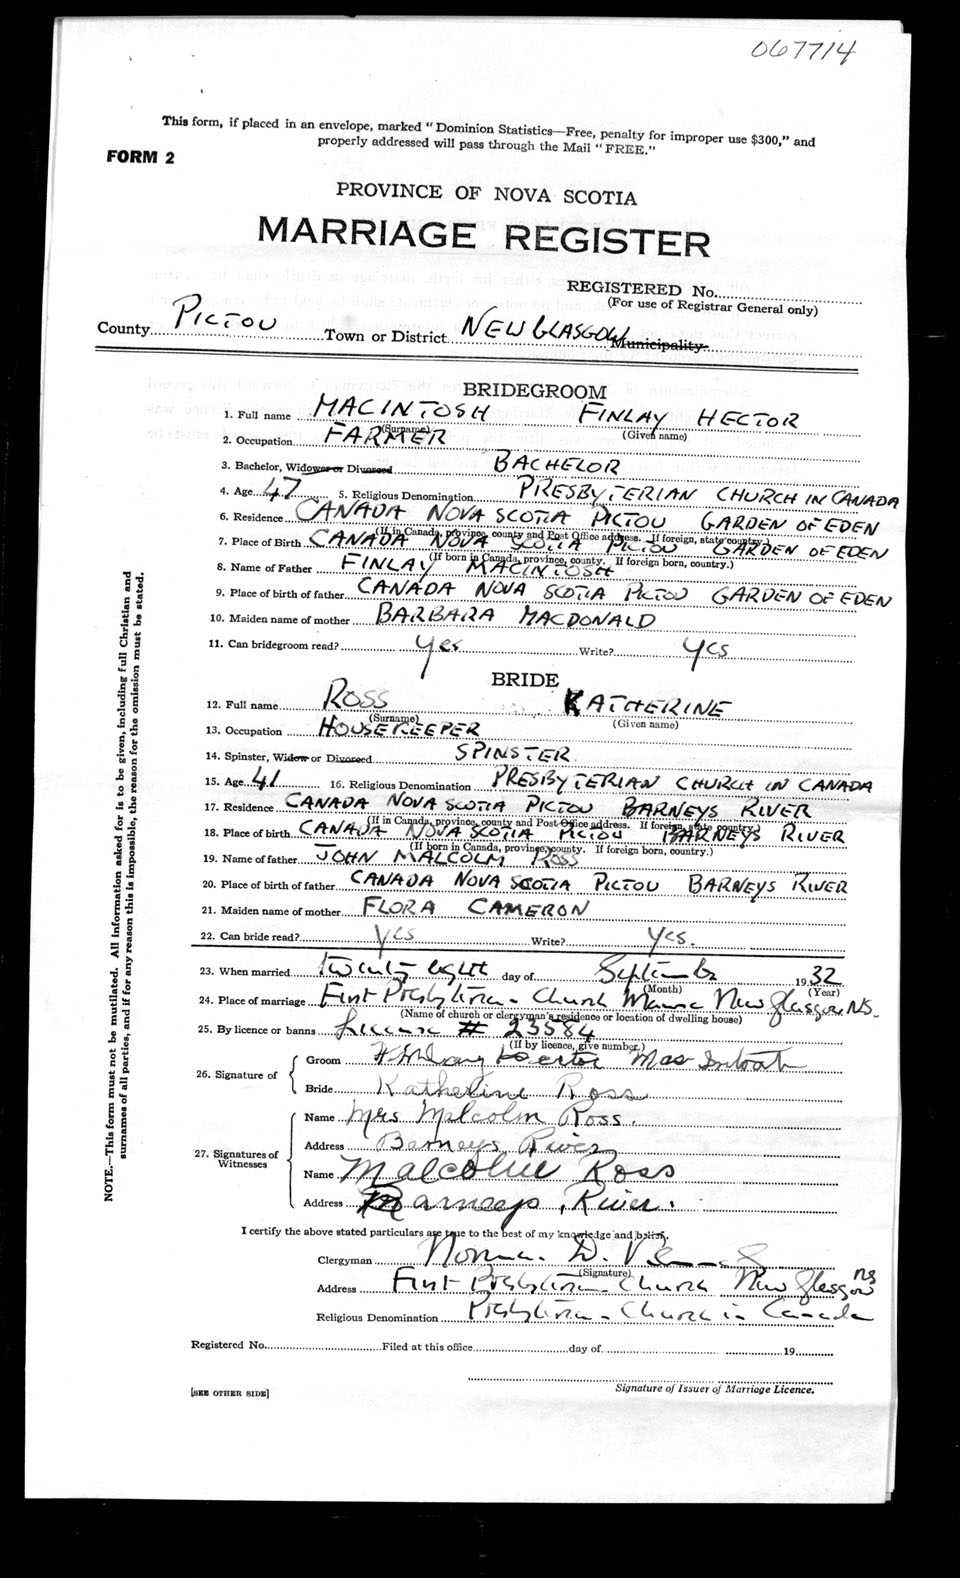 067714
This form, if placed in an envelope, marked "Dominion Statistics—Free, penalty for improper use $300," and
properly addressed will pass through the Mail "FREE."
FORM 2
PROVINCE OF NOVA SCOTIA
MARRIAGE REGISTER
REGISTERED No.
(For use of Registrar General only)
County PICTOU Town or District NEW GLASGOW Municipality
BRIDEGROOM
1. Full name MACINTOSH FINLAY HECTOR
(Surname) (Given name)
2. Occupation FARMER
3. Bachelor, Widower or Divorced BACHELOR
4. Age 47 5. Religious Denomination PRESBYTERIAN CHURCH IN CANADA
6. Residence CANADA NOVA SCOTIA PICTOU GARDEN OF EDEN
(If in Canada, province, county and Post Office address. If foreign, state country.)
7. Place of Birth CANADA NOVA SCOTIA PICTOU GARDEN OF EDEN
(If born in Canada, province, county. If foreign born, country.)
8. Name of Father FINLAY MACINTOSH
9. Place of birth of father CANADA NOVA SCOTIA PICTOU GARDEN OF EDEN
10. Maiden name of mother BARBARA MACDONALD
11. Can bridegroom read? yes Write? yes
BRIDE
12. Full name ROSS KATHERINE
(Surname) (Given name)
13. Occupation HOUSEKEEPER
14. Spinster, Widow or Divorced SPINSTER
15. Age 41 16. Religious Denomination PRESBYTERIAN CHURCH IN CANADA
17. Residence CANADA NOVA SCOTIA PICTOU BARNEYS RIVER
(If in Canada, province, county and Post Office address. If foreign, state country.)
18. Place of birth CANADA NOVA SCOTIA PICTOU BARNEYS RIVER
(If born in Canada, province, county. If foreign born, country.)
19. Name of father JOHN MALCOLM ROSS
20. Place of birth of father CANADA NOVA SCOTIA PICTOU BARNEYS RIVER
21. Maiden name of mother FLORA CAMERON
22. Can bride read? yes Write? yes.
23. When married twenty eight day of September 1932
(Month) (Year)
24. Place of marriage First Presbyterian Church Manse New Glasgow N.S.
(Name of church or clergyman's residence or location of dwelling house)
25. By licence or banns License # 23584
(If by licence, give number.)
26. Signature of
Groom Hector MacIntosh
Bride Katherine Ross
27. Signatures of Witnesses
Name Mrs Malcolm Ross.
Address Barneys River
Name Malcolm Ross
Address Barneys River.
I certify the above stated particulars are true to the best of my knowledge and belief.
Clergyman Norman D.
(Signature)
Address First Presbyterian Church New Glasgow NS
Religious Denomination Presbyterian Church in Canada
Registered No. Filed at this office day of 19
Signature of Issuer of Marriage Licence.
[SEE OTHER SIDE]
NOTE.—This form must not be mutilated. All information asked for is to be given, including full Christian and
surnames of all parties, and if for any reason this is impossible, the reason for the omission must be stated.